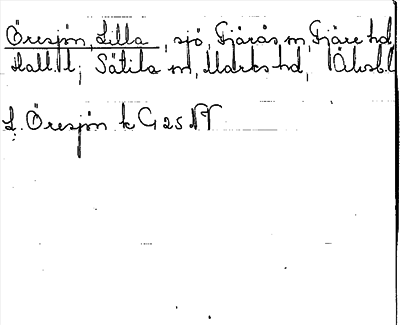 Öresjön, Lilla, sjö, Fjärås sn, Fjäre hd
Hall. l; Sätila sn, Marks hd, Älvsb. l
L. Öresjön k G 25 NV